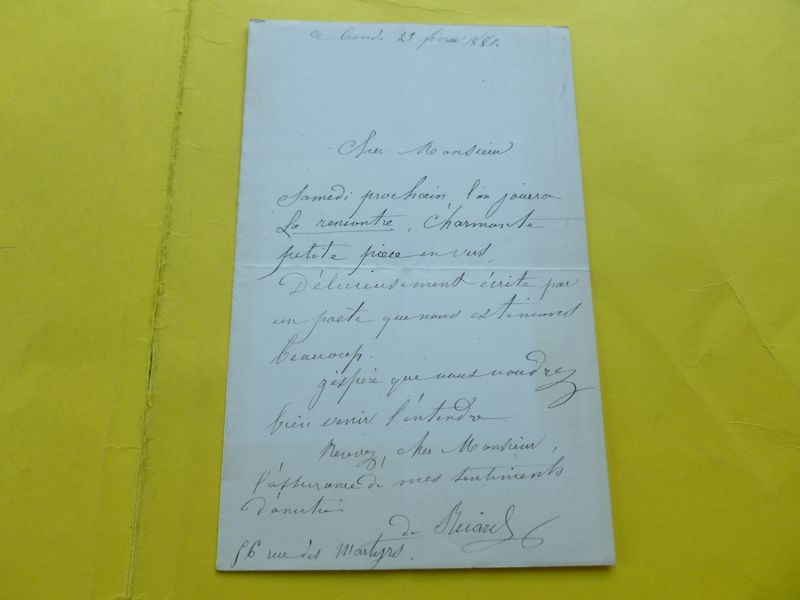 ce lundi 23 fevrier 1881.
Cher Monsieur
Samedi prochain, l'on jouera
La rencontre, Charmante
petite piece en vers,
Délicieusement écrite par
un poete que nous estimons
beaucoup.
J'éspére que vous voudrez
bien venir l'entendre
Recevez, cher Monsieur,
l'assurance de mes sentiments
d'amitié
de
56 rue des Martyrs.